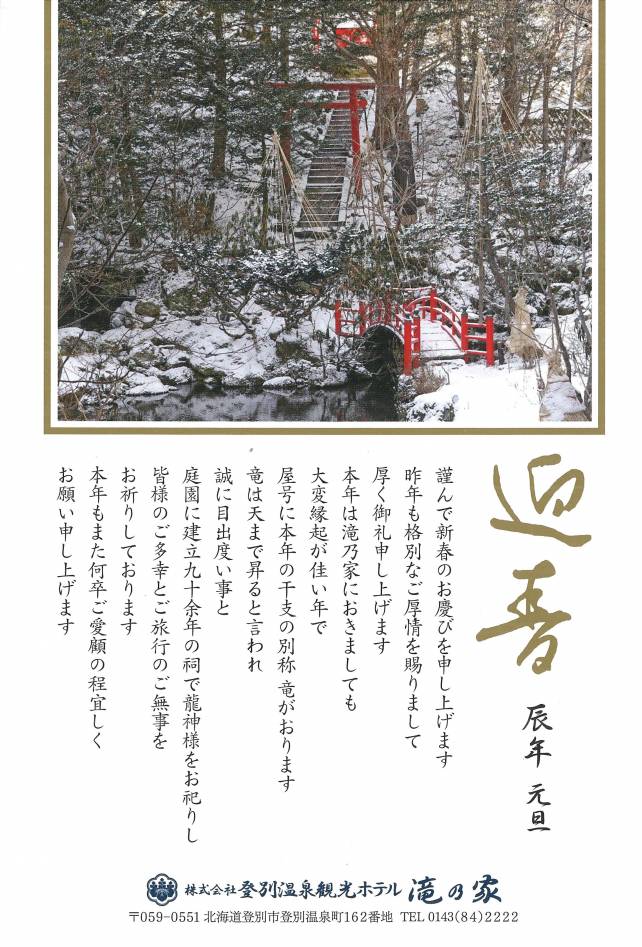 迎春
辰年 元旦
謹んで新春のお慶びを申し上げます
昨年も格別なご厚情を賜りまして
厚く御礼申し上げます
本年は滝乃家におきましても
大変縁起が佳い年で
屋号に本年の干支の別称 竜がおります
竜は天まで昇ると言われ
誠に目出度い事と
庭園に建立九十余年の祠で龍神様をお祀りし
皆様のご多幸とご旅行のご無事を
お祈りしております
本年もまた何卒ご愛顧の程宜しく
お願い申し上げます
株式会社 登別温泉観光ホテル 滝乃家
〒059-0551 北海道登別市登別温泉町162番地 TEL 0143(84)2222